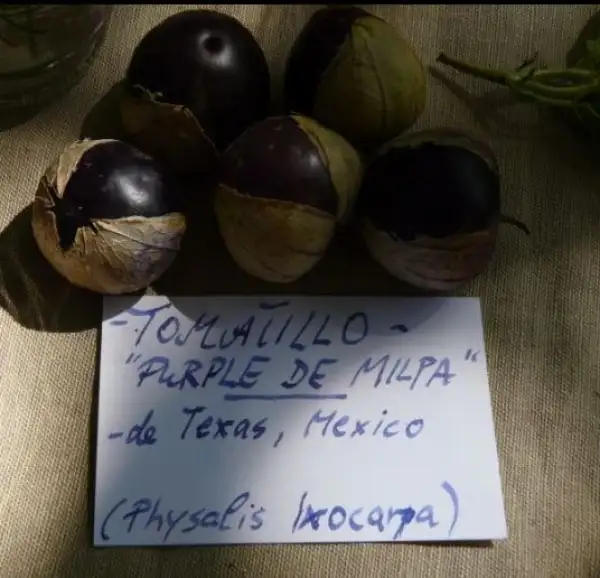 -TOMATILLO-
"PURPLE DE MILPA"
-de Texas, Mexico
(Physalis Ixocarpa)